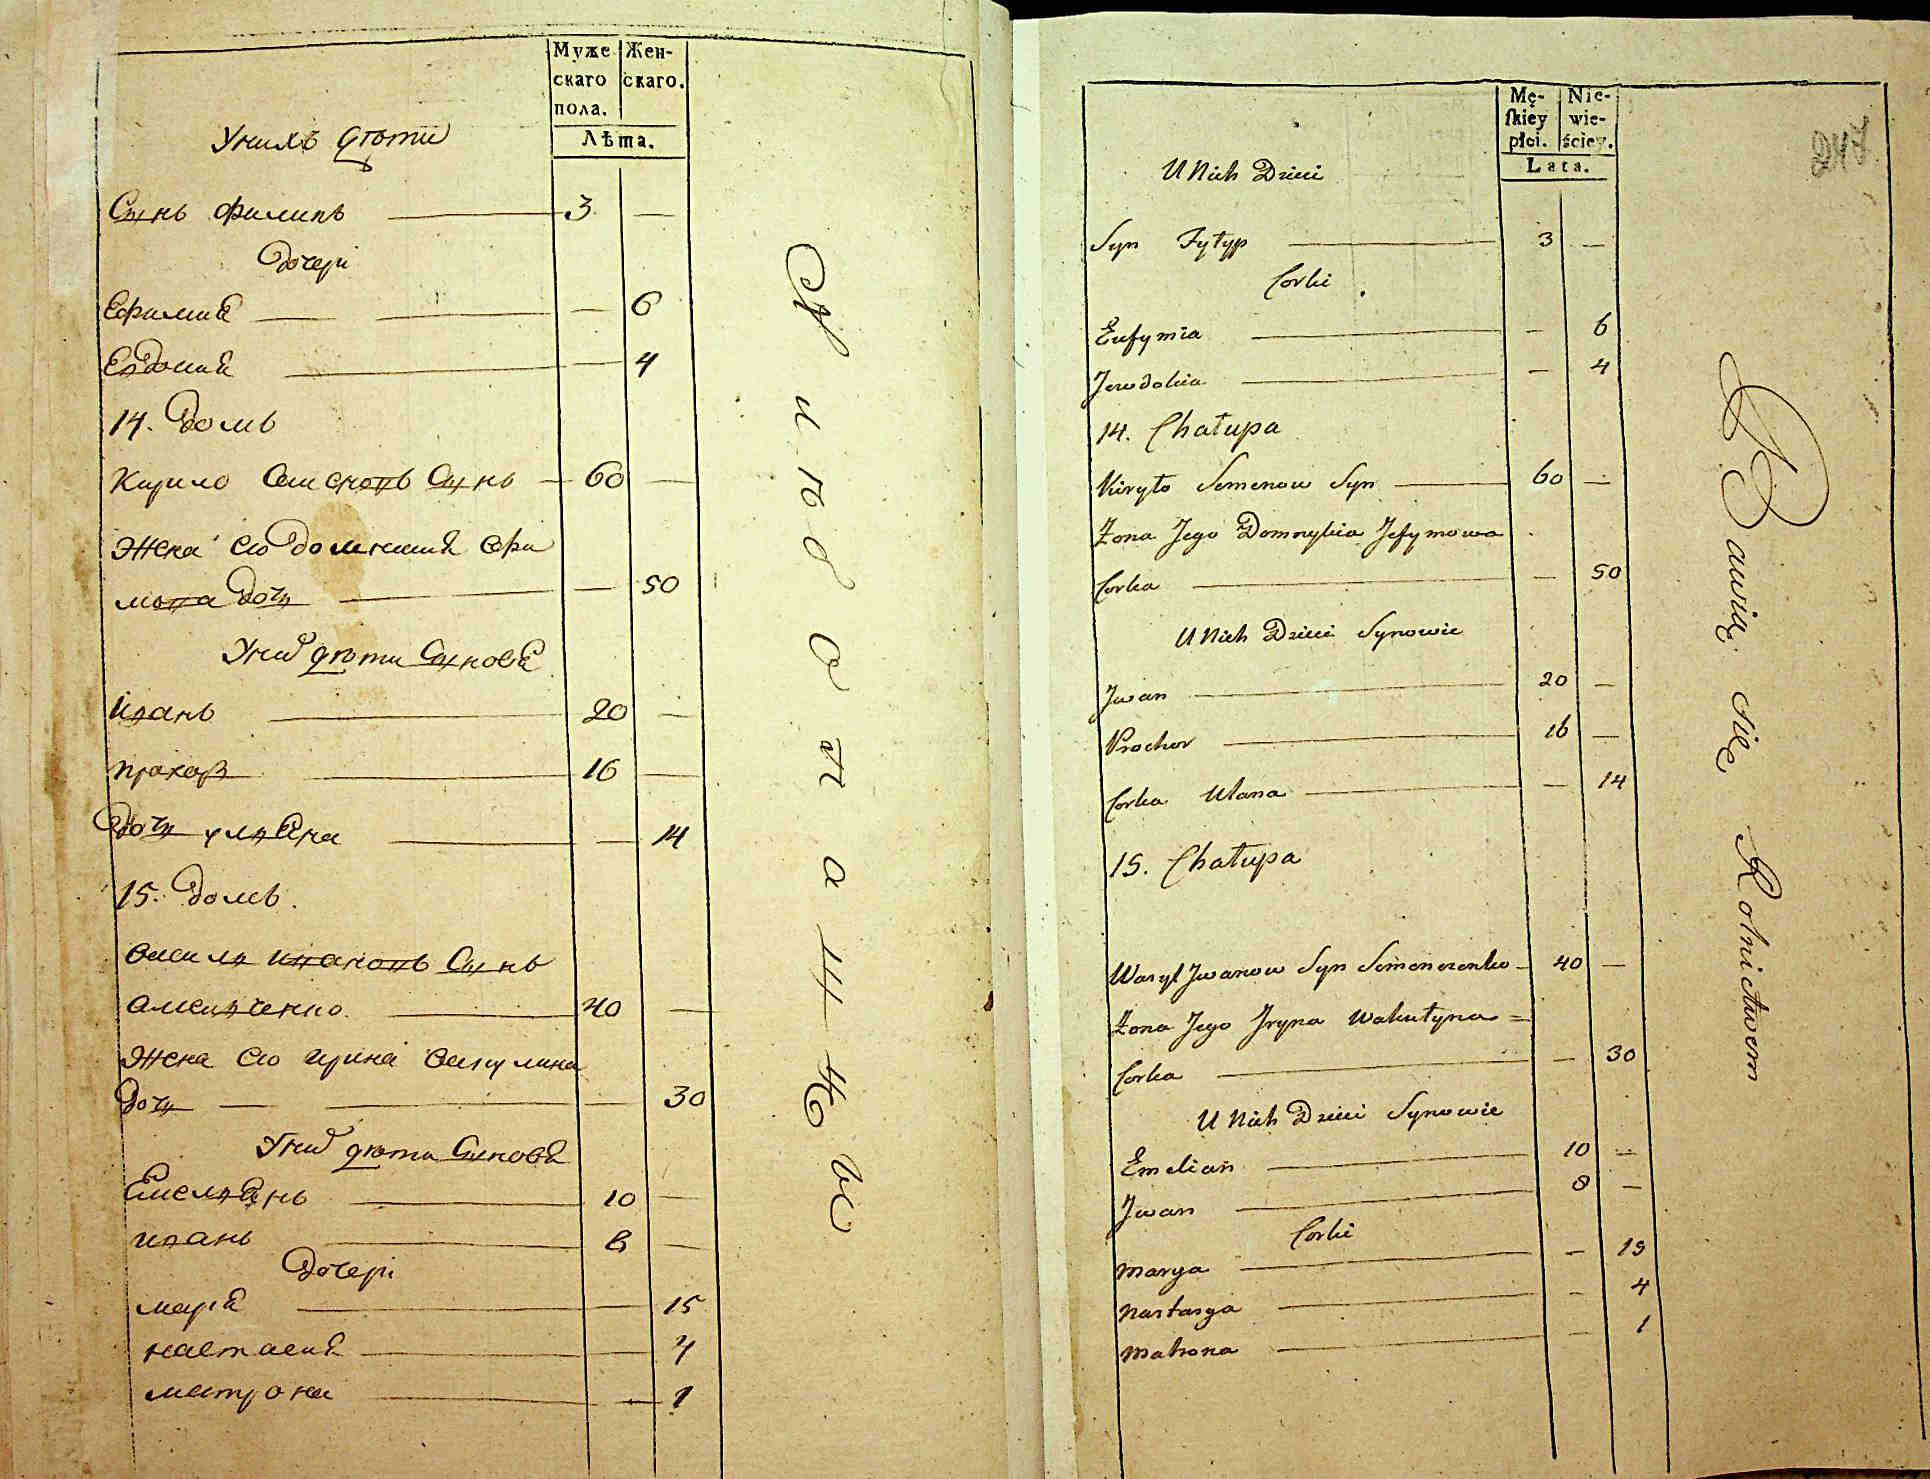 Муже
скаго
пола.
Жен-
скаго.
Лѣта.
Унихъ дѣти
Сынъ Филипъ 3 —
Дочери
Ефимия — 6
Евдокия — 4
14. Домъ
Кирило Семеновъ Сынъ 60 —
Жена его Домникия Ефи
мова Дочь — 50
Унихъ дѣти Сыновя
Иванъ 20 —
Прохоръ 16 —
Дочь улияна — 14
15. Домъ.
Василь Ивановъ Сынъ
40 —
Жена его Ирина Вакулина
Дочь — 30
Унихъ дѣти Синовя
Емельянъ 10 —
Иванъ 8 —
Дочери
Мария — 15
Настасия — 4
Матрона — 1
Хлѣбопашцы
Mę-
ſkiey
płci.
Nie-
wie-
ściey.
Lata.
247
U Nich Dzieci
Syn Fyłyp 3 —
Corki
Eufymia — 6
Jewdokia — 4
14. Chałupa
Kiryło Semenow Syn 60 —
Żona Jego Domnykia Jefymowa
Corka — 50
U Nich Dzieci Synowie
Jwan 20 —
Prochor 16 —
Corka Ulana — 14
15. Chałupa
Wasyl Jwanow Syn Semenczenko 40 —
Żona Jego Jryna Wakułyna =
Corka — 30
U Nich Dzieci Synowie
Emelian 10 —
Jwan 8 —
Corki
Marya — 15
Nastasya — 4
Matrona — 1
Bawią się Rolnictwem